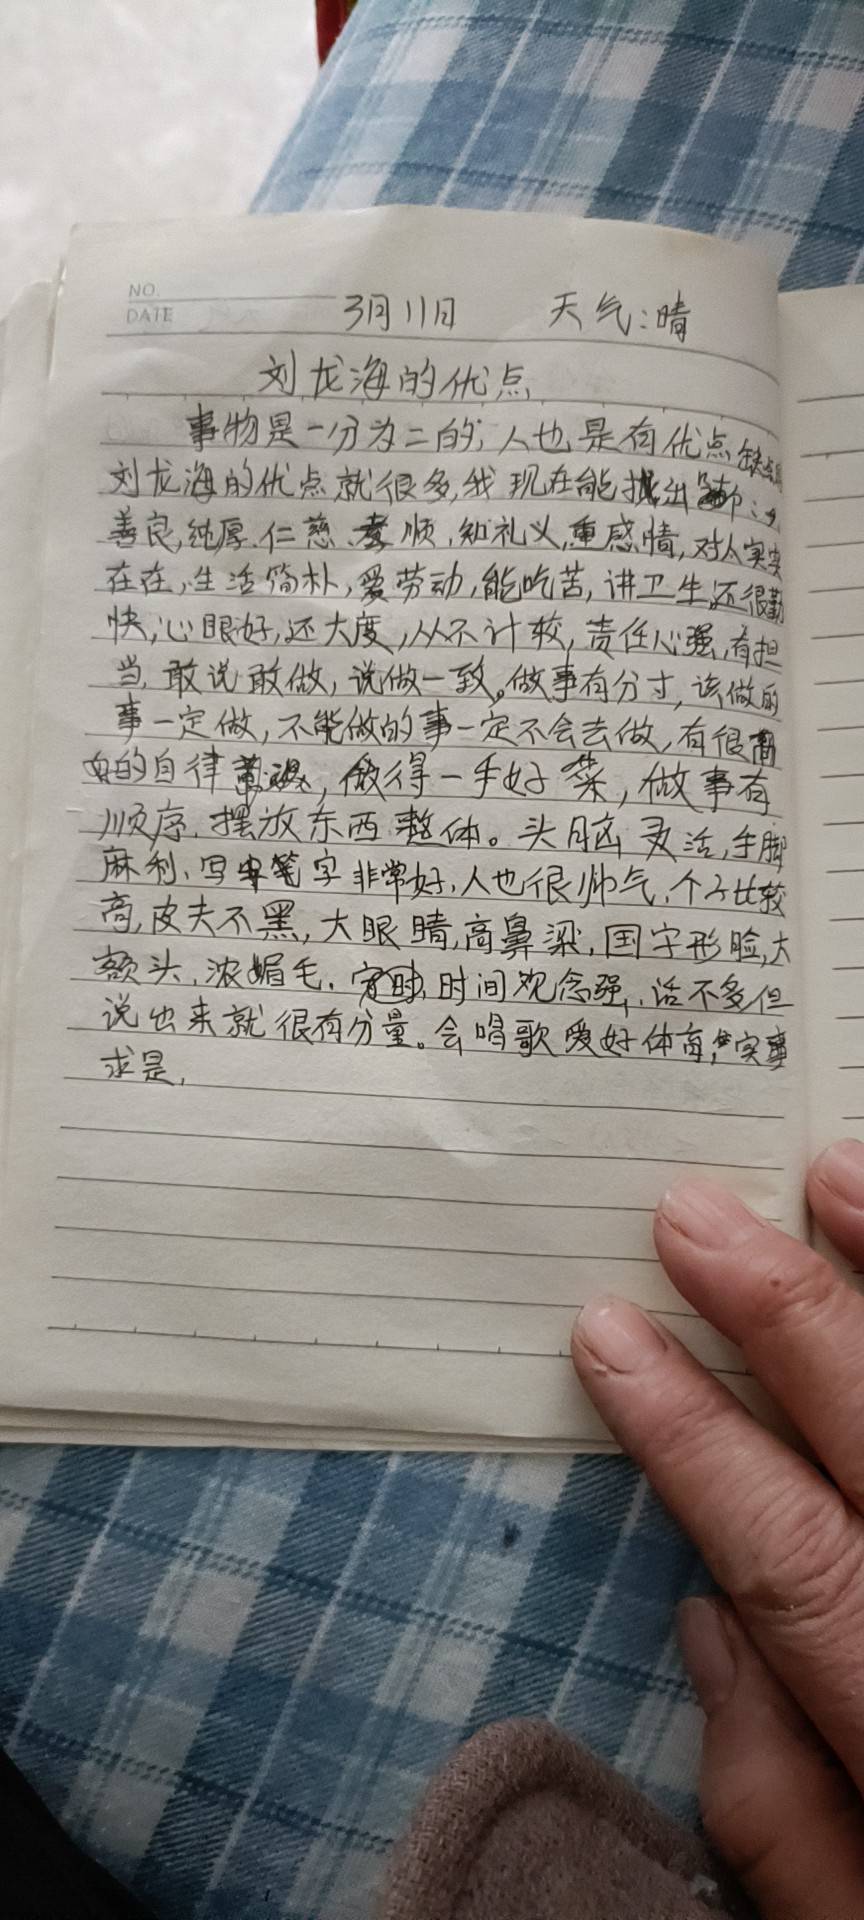 NO.
DATE 3月11日 天气:晴
刘龙海的优点
事物是一分为二的,人也是有优点缺点
刘龙海的优点就很多,我现在能找出
善良,纯厚、仁慈、孝顺,知礼义,重感情,对人实实
在在,生活简朴,爱劳动,能吃苦,讲卫生,还很勤
快,心眼好,还大度,从不计较,责任心强,有担
当,敢说敢做,说做一致。做事有分寸,该做的
事一定做,不能做的事一定不会去做,有很高
的自律,做得一手好菜,做事有
顺序,摆放东西整体。头脑灵活,手脚
麻利、写字非常好,人也很帅气,个子比较
高,皮夫不黑,大眼睛,高鼻梁,国字形脸,大
额头,浓媚毛,时间观念强,话不多但
说出来就很有分量。会唱歌爱好体育,实事
求是,